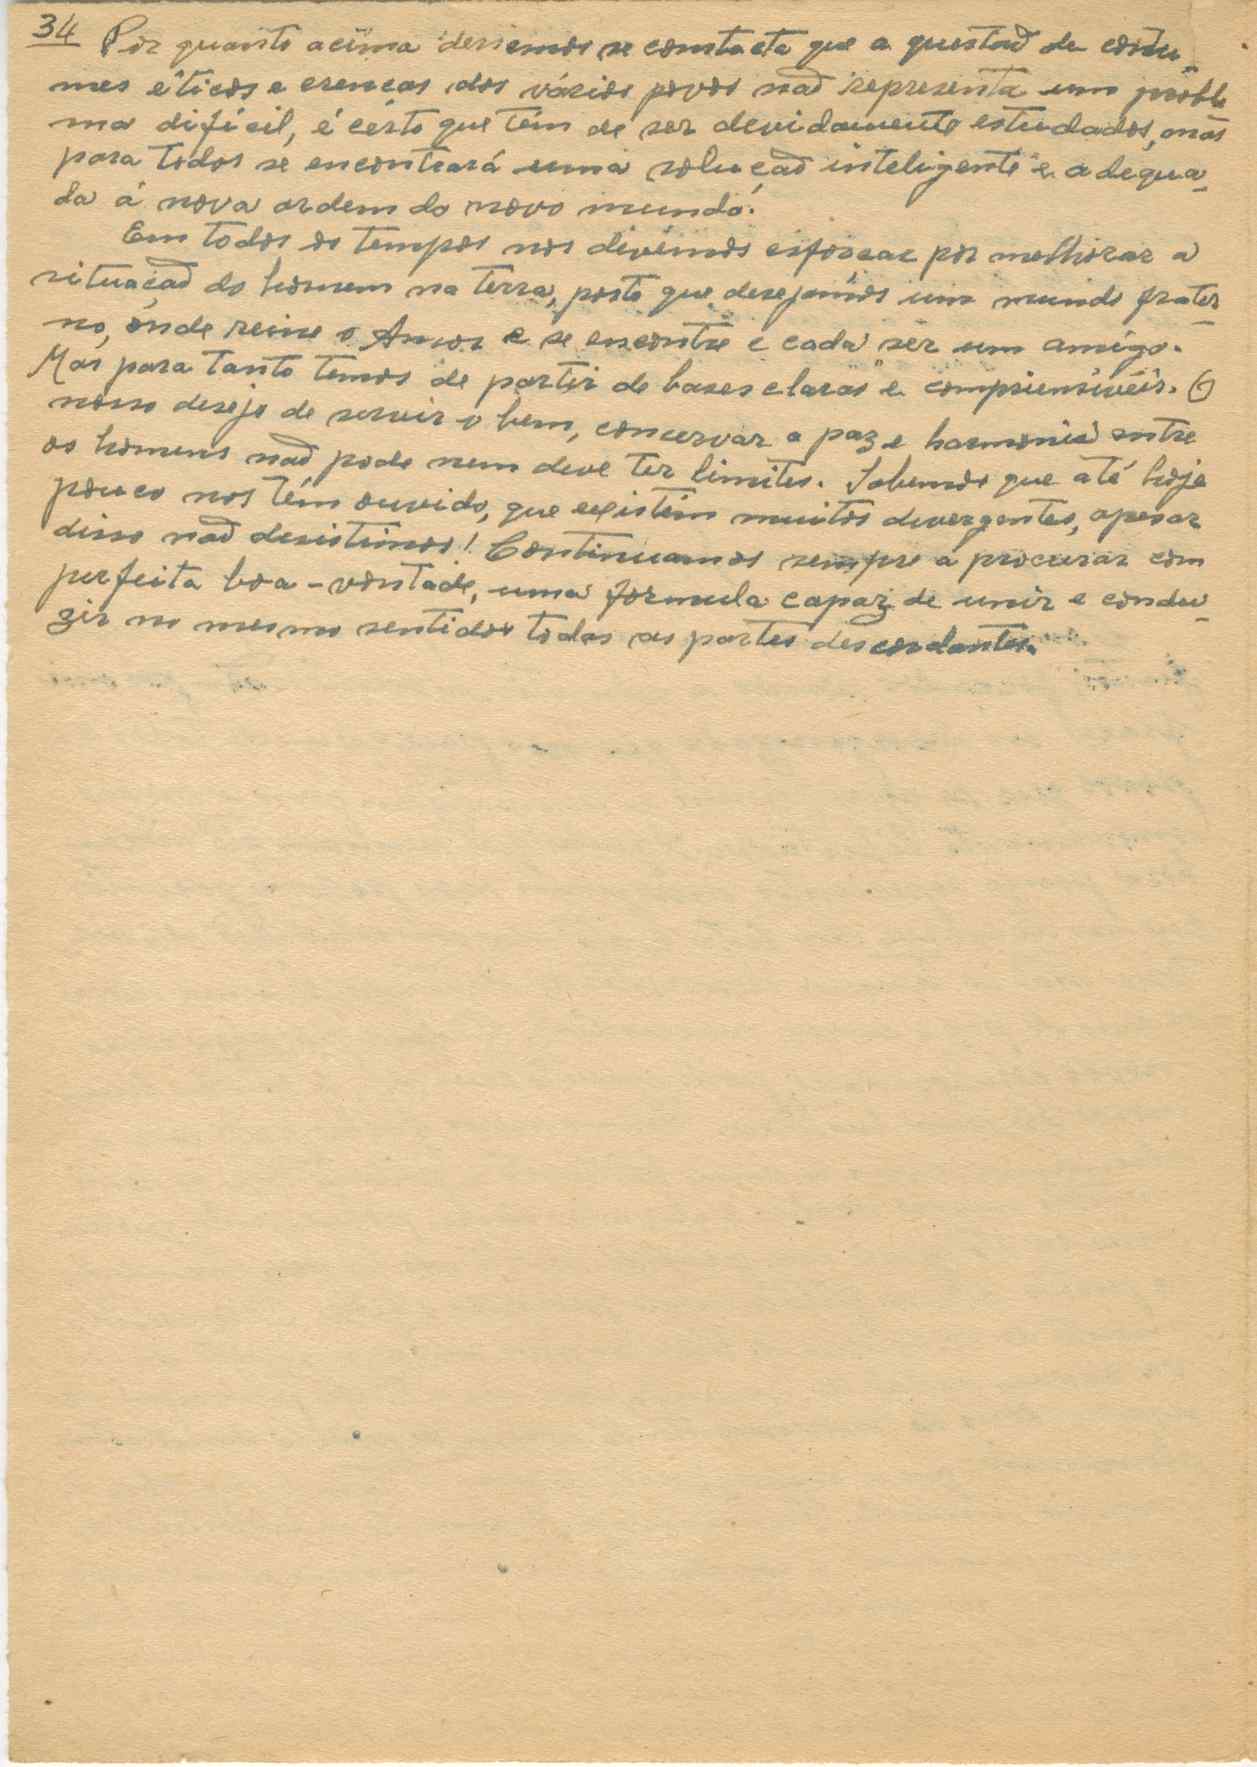 34 Por quanto acima dissemos se constacta que a questaõ de costu-
mes éticos e crenças dos vários povos naõ representa um proble
ma difícil, é cérto que têm de ser devidamente estudados, mas
para todos se encontrará uma soluçaõ inteligente e adequa-
da á nova ordem do novo mundo.
Em todos os tempos nos devemos esforçar por melhorar a
situaçaõ do homem na terra, posto que desejamos um mundo frater-
no, onde reine o Amor e se encontre e cada ser um amigo.
Mas para tanto temos de partir de bases claras e comprienssivéis. O
nosso desejo de servir o bem, concervar a paz e harmonia entre
os homens naõ pode nem deve ter limites. Sabemos que até hoje
pouco nos têm ouvido, que existem muitos divergentes, apesar
disso naõ desistimos! Continuamos sempre a procurar com
perfeita boa-vontade, uma formula capaz de unir e condu-
zir no mesmo sentidos todas as partes descordantes.